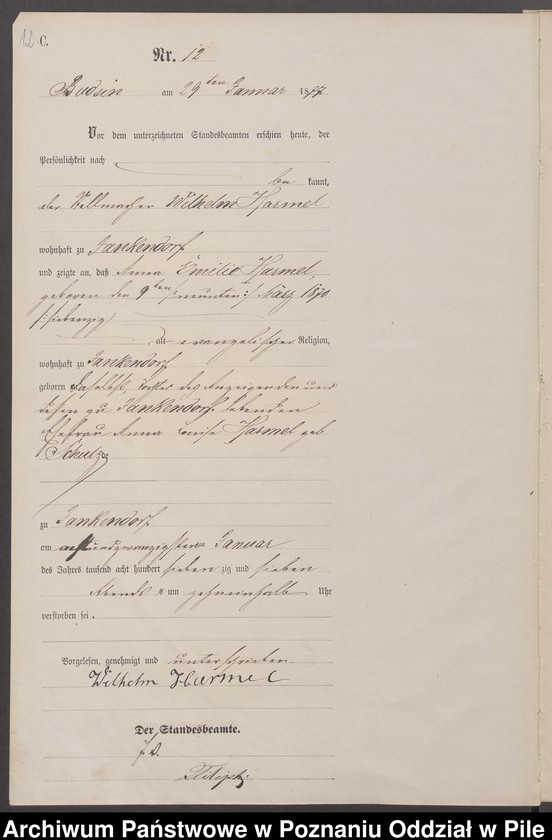 12 C.
Nr. 12
Budsin am 29ten Januar 1877
Vor dem unterzeichneten Standesbeamten erschien heute, der
Persönlichkeit nach
be kannt,
der Stellmacher Wilhelm Harmel
wohnhaft zu Jankendorf
und zeigte an, daß Anna Emilie Harmel,
geboren den 9ten /:neunten:/ März 1870
/:siebenzig:/
alt evangelischer Religion,
wohnhaft zu Jankendorf
geboren daselbst, Tochter des Anzeigenden und
dessen zu Jankendorf lebenden
Ehefrau Anna Louise Harmel geb
Schulz
zu Jankendorf
am achtundzwanzigsten Januar
des Jahres tausend acht hundert sieben zig und sieben
Abends um zehneinhalb Uhr
verstorben sei.
Vorgelesen, genehmigt und unterschrieben
Wilhelm Harmel
Der Standesbeamte.
Archiwum Państwowe w Poznaniu Oddział w Pile